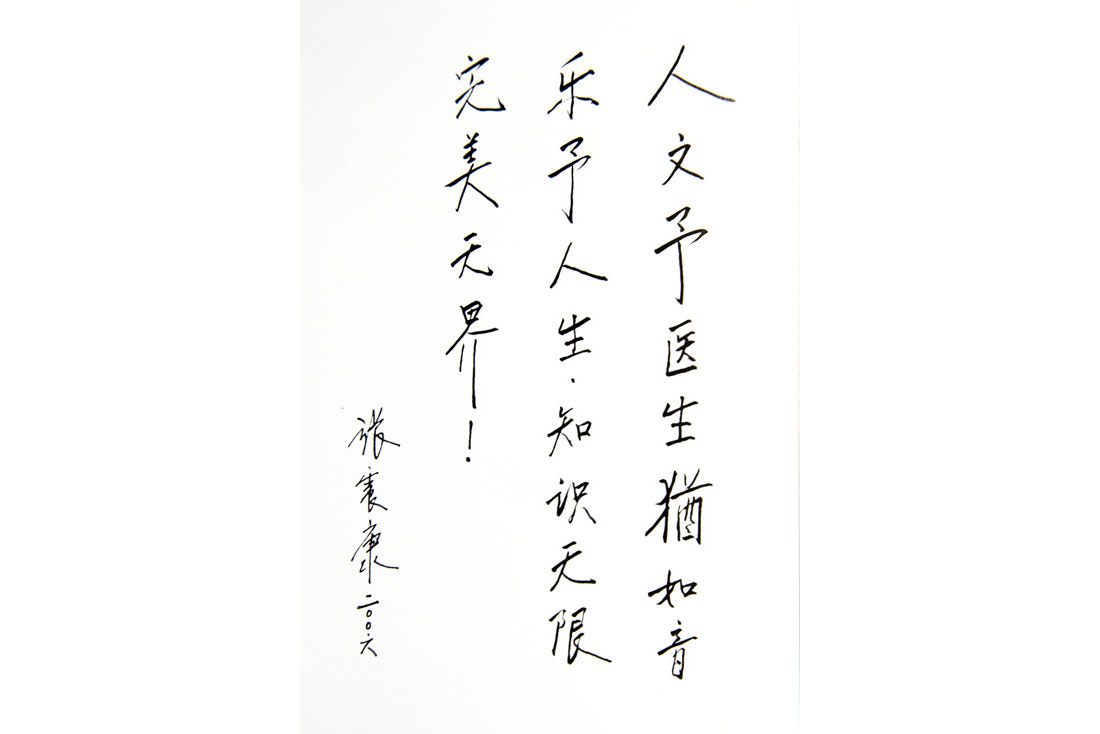 人文予医生猶如音
乐予人生.知识无限
完美无界！
张震康二〇〇六